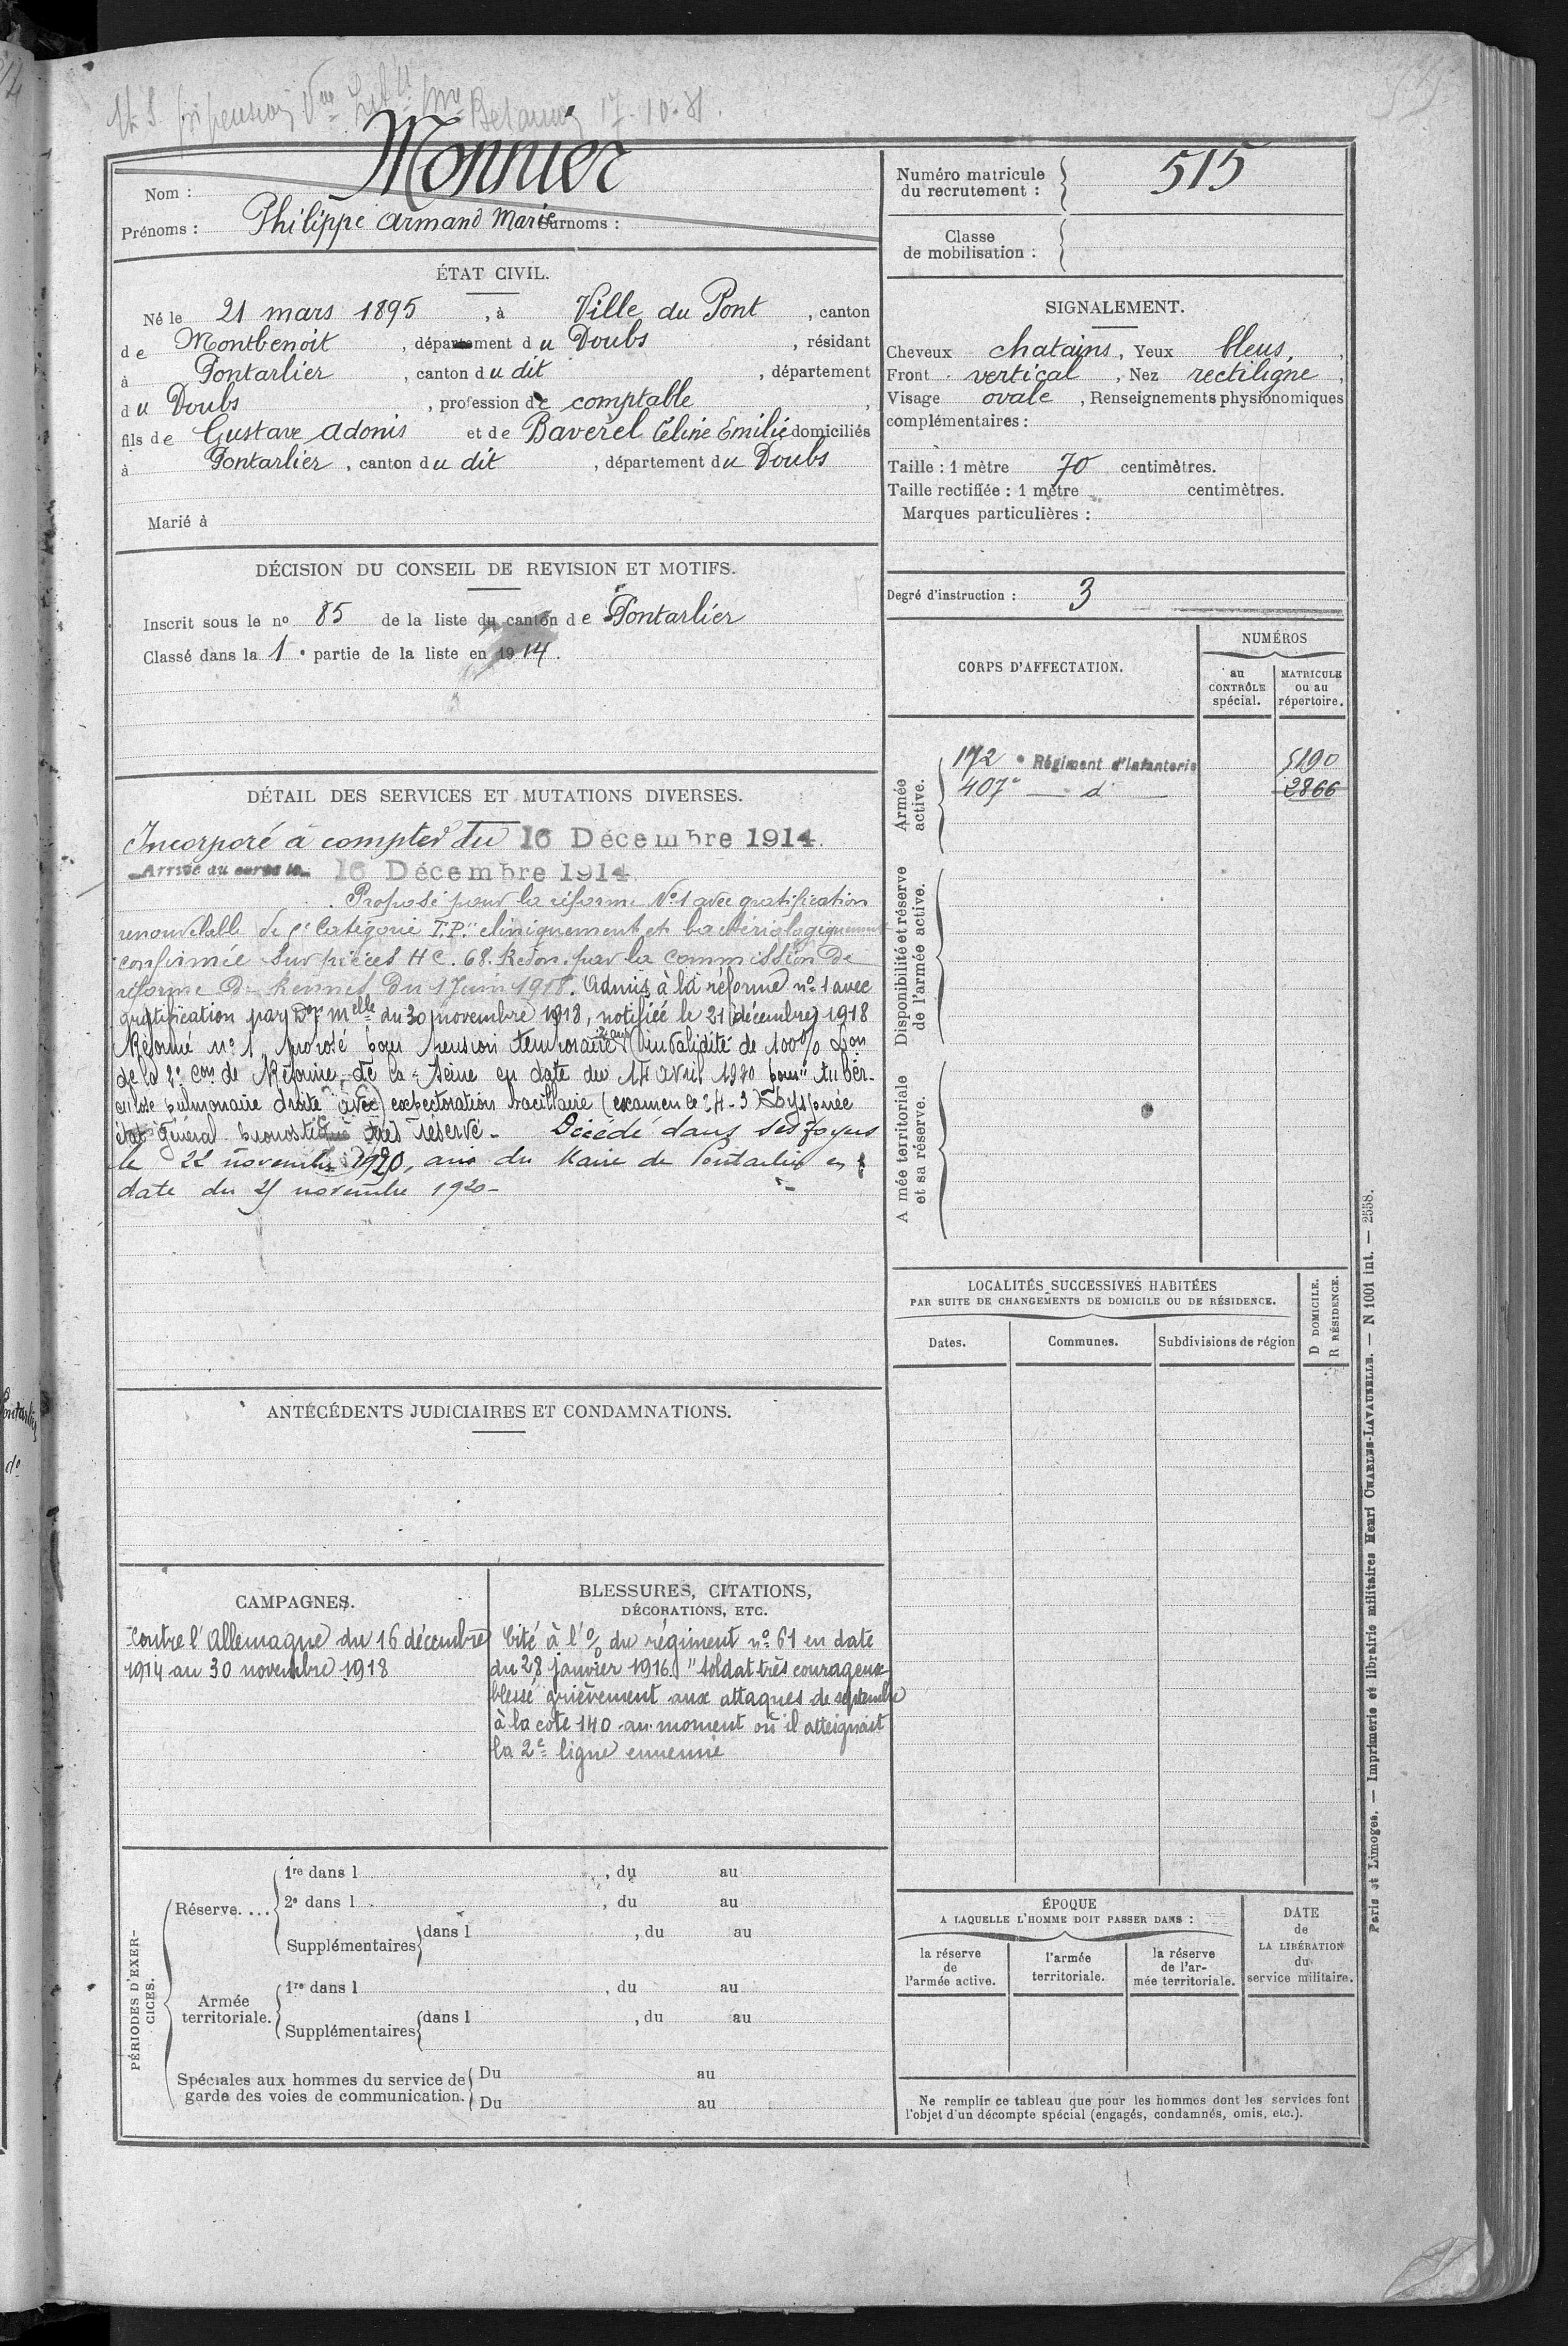 Monnier
Nom :
Prénoms : Philippe Armand Marie Surnoms :
ÉTAT CIVIL.
Né le 21 mars 1895, à Ville du Pont, canton
de Montbenoit, département du Doubs, résidant
à Pontarlier, canton du dit, département
du Doubs, profession de comptable,
fils de Gustave Adonis et de Baverel Céline Emilie domiciliés
à Pontarlier, canton du dit, département du Doubs
Marié à
DÉCISION DU CONSEIL DE REVISION ET MOTIFS.
Inscrit sous le no 85 de la liste du canton de Pontarlier
Classé dans la 1e partie de la liste en 1914.
DÉTAIL DES SERVICES ET MUTATIONS DIVERSES.
Incorporé à compter du 16 Décembre 1914.
Arrivé au corps le 16 Décembre 1914
Proposé pour la réforme No 1 avec gratification
renouvelable de Catégorie T.P." cliniquement et bactériologiquement
confirmée sur pièces HC. 68. Redon. par la commission de
réforme de Rennes du 1 Juin 1918. Admis à la réforme no 1 avec
gratification par Don Melle du 30 novembre 1918, notifiée le 21 décembre 1918
Réformé no 1, proposé pour pension temporaire invalidité de 100% Don
de la 2e Con de Réforme de la Seine en date du 14 avril 1920 pour "tuber-
culose pulmonaire droite avec expectoration bacillaire (examen le 24-3) Dyspnée
état général pronostic très réservé - Décédé dans ses foyers
le 22 novembre 1920, avis du Maire de Pontarlier en
date du 25 novembre 1920 -
ANTÉCÉDENTS JUDICIAIRES ET CONDAMNATIONS.
CAMPAGNES.
Contre l'Allemagne du 16 décembre
1914 au 30 novembre 1918
BLESSURES, CITATIONS,
DÉCORATIONS, ETC.
Cité à l'o/ du régiment no 61 en date
du 28 janvier 1916. "Soldat très courageux
blessé grièvement aux attaques de septembre
à la cote 140 au moment où il atteignait
la 2e ligne ennemie
PÉRIODES D'EXER-
CICES.
Réserve....
1re dans l , du au
2e dans l , du au
Supplémentaires dans l , du au
Armée
territoriale.
1re dans l , du au
Supplémentaires dans l , du au
Spéciales aux hommes du service de
garde des voies de communication.
Du au
Du au
Numéro matricule
du recrutement : 515
Classe
de mobilisation :
SIGNALEMENT.
Cheveux chatains, Yeux bleus,
Front vertical, Nez rectiligne,
Visage ovale, Renseignements physionomiques
complémentaires :
Taille : 1 mètre 70 centimètres.
Taille rectifiée : 1 mètre centimètres.
Marques particulières :
Degré d'instruction : 3
CORPS D'AFFECTATION.
NUMÉROS
au
CONTRÔLE
spécial.
MATRICULE
ou au
répertoire.
Armée
active.
172e Régiment d'Infanterie 5190
407e — do — 2866
Disponibilité et réserve
de l'armée active.
A mée territoriale
et sa réserve.
LOCALITÉS SUCCESSIVES HABITÉES
PAR SUITE DE CHANGEMENTS DE DOMICILE OU DE RÉSIDENCE.
Dates.
Communes.
Subdivisions de région
D DOMICILE.
R RÉSIDENCE.
ÉPOQUE
A LAQUELLE L'HOMME DOIT PASSER DANS :
la réserve
de
l'armée active.
l'armée
territoriale.
la réserve
de l'ar-
mée territoriale.
DATE
de
LA LIBÉRATION
du
service militaire.
Ne remplir ce tableau que pour les hommes dont les services font
l'objet d'un décompte spécial (engagés, condamnés, omis, etc.).
Paris et Limoges. — Imprimerie et librairie militaires Henri CHARLES-LAVAUZELLE. — N 1001 int. — 2558.